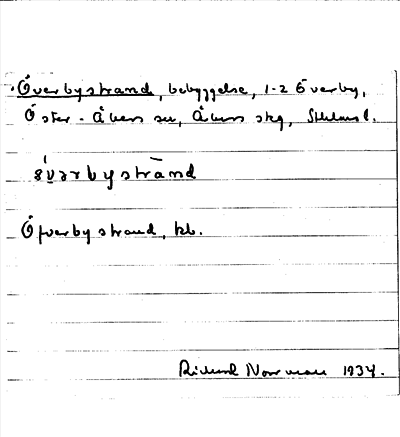 Överbystrand, bebyggelse, 1-2 Överby,
Öster-Åkers sn, Åkers skg, Sthlms l.
Öfverbystrand, kb.
Rickard Norrman 1934.